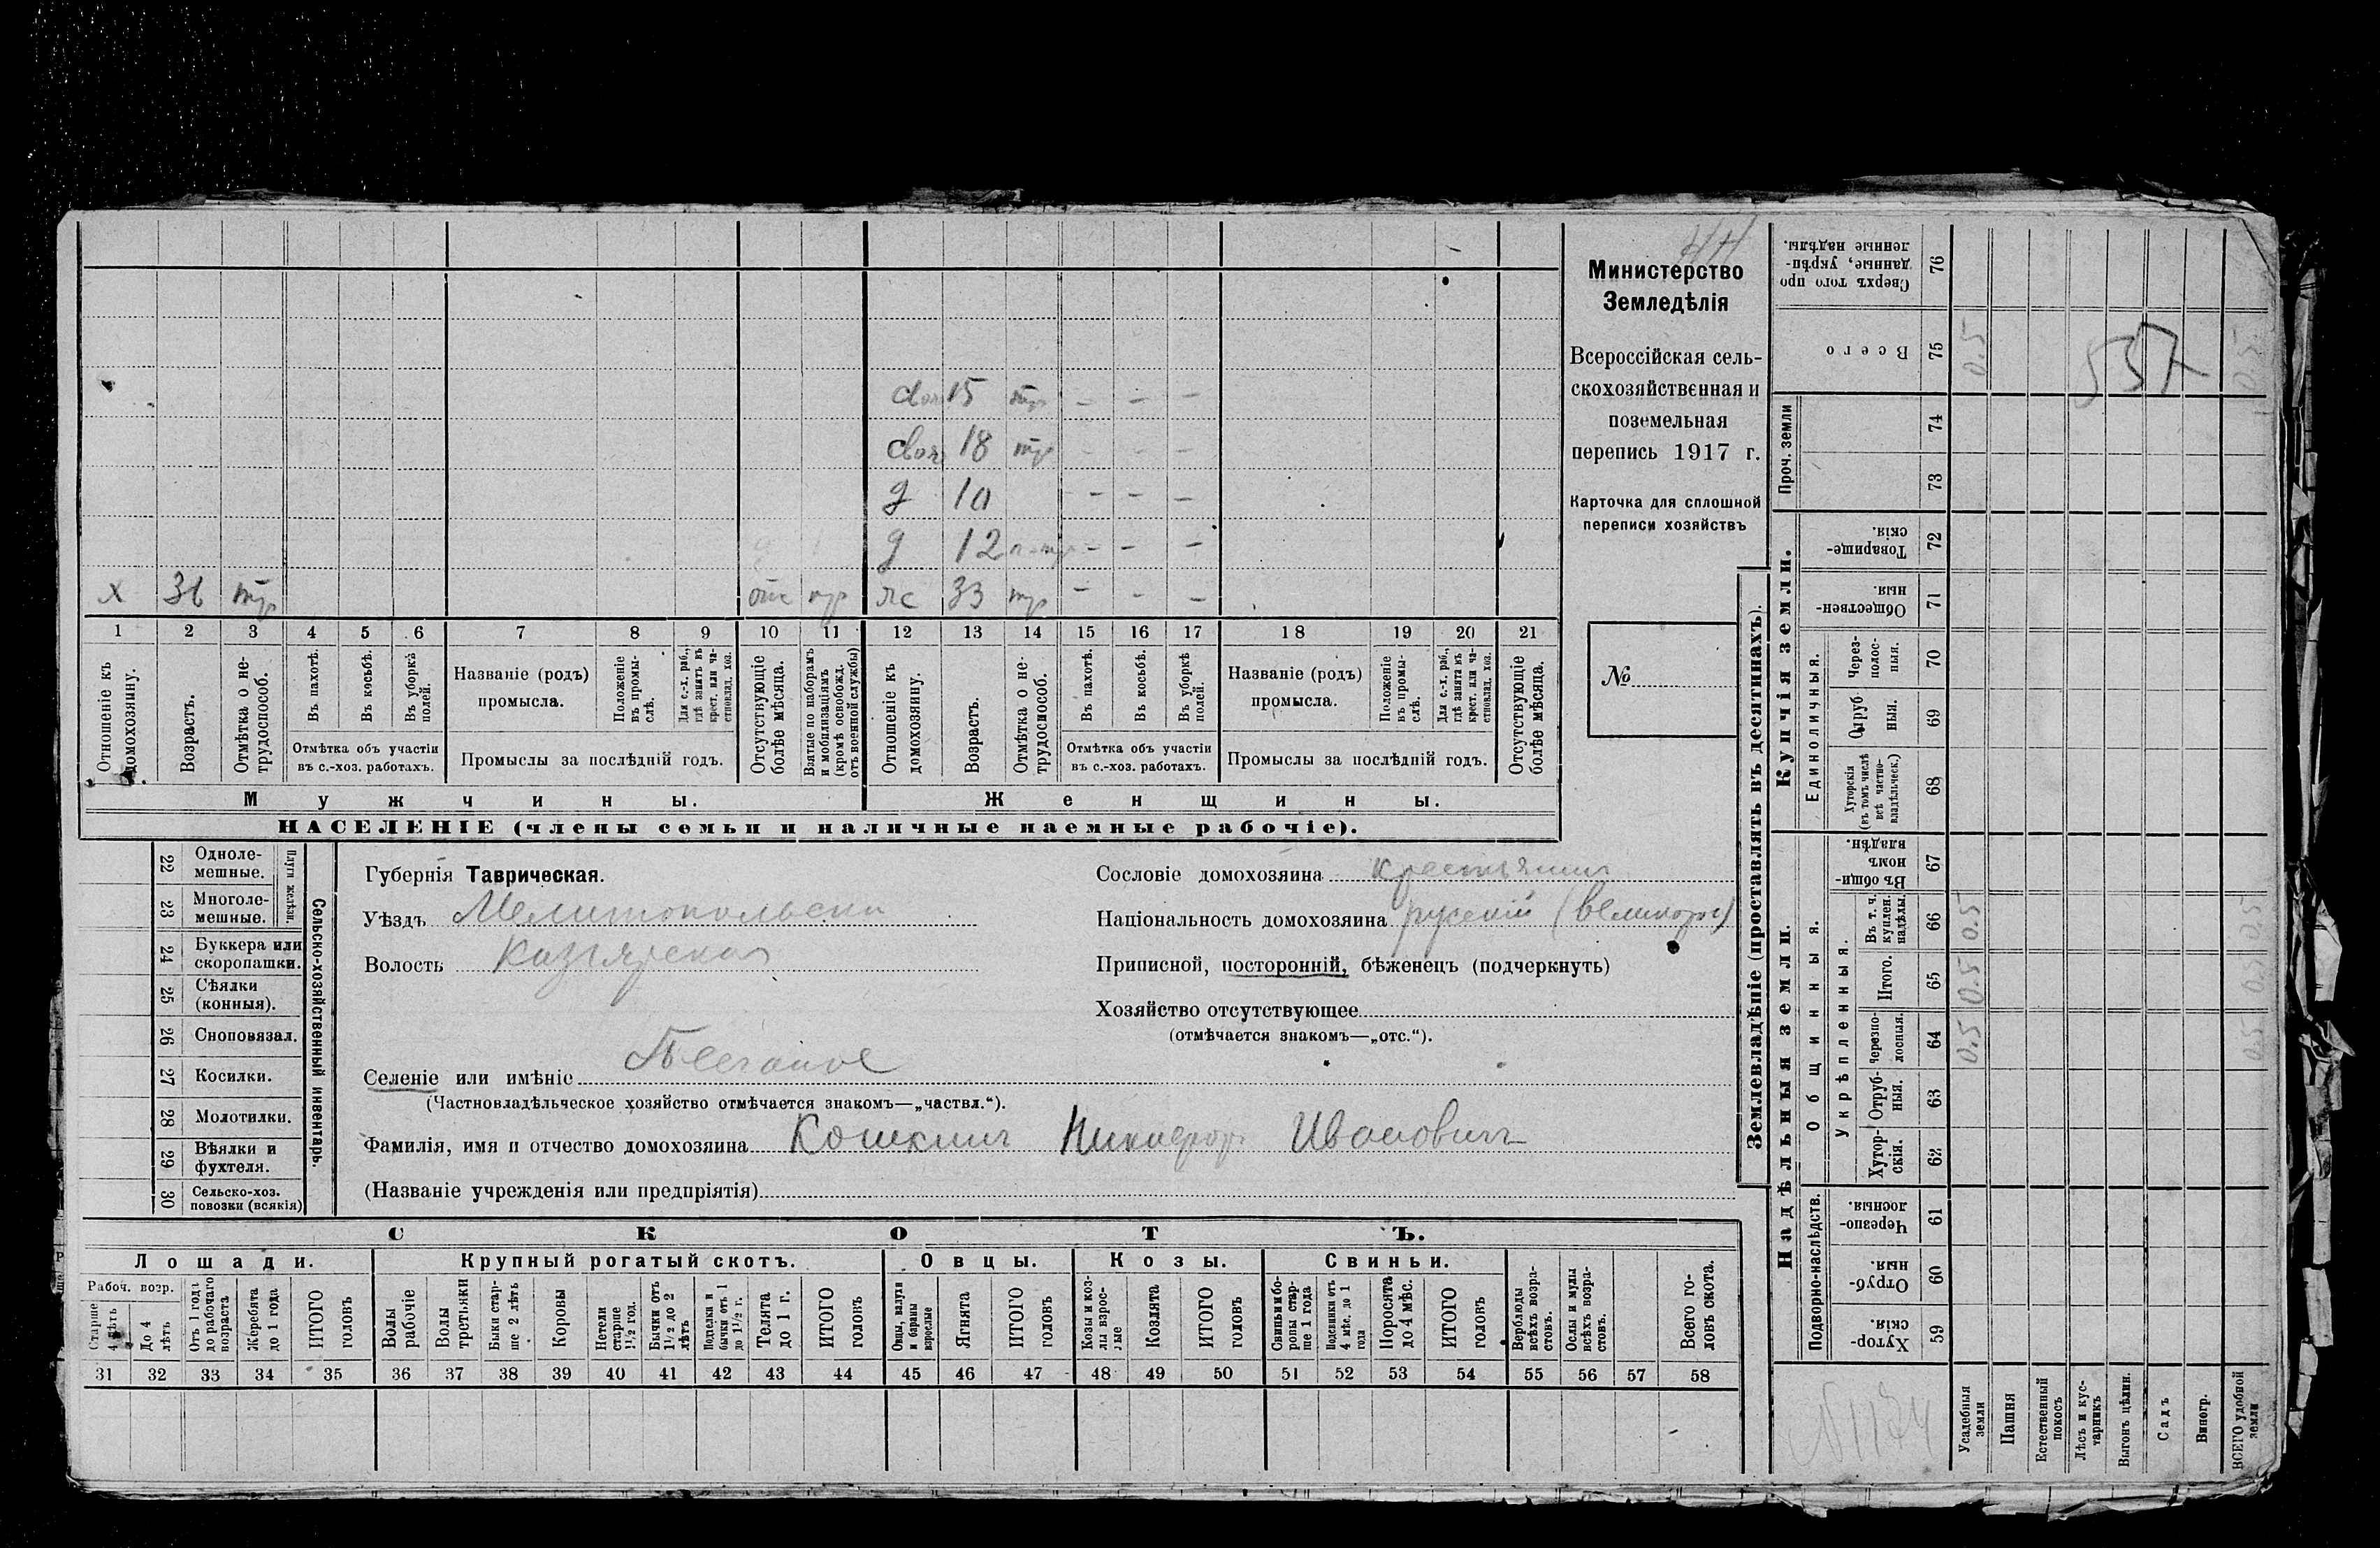 Министерство
Земледѣлія
Всероссійская сель-
скохозяйственная и
поземельная
перепись 1917 г.
Карточка для сплошной
переписи хозяйствъ
№
15 тр - - -
18 тр - - -
д 10 - - -
д 12 - - -
х тр отс 33 тр - - -
1 2 3 4 5 6 7 8 9 10 11 12 13 14 15 16 17 18 19 20 21
Отношеніе къ домохозяину.
Возрастъ.
Отмѣтка о не-трудоспособ.
Въ пахотѣ.
Въ косьбѣ.
Въ уборкѣ полей.
Отмѣтка объ участіи
въ с.-хоз. работахъ.
Названіе (родъ)
промысла.
Положеніе въ промы-слѣ.
Для с.-х. раб., гдѣ занятъ въ крест. или ча-стновлад. хоз.
Промыслы за послѣдній годъ.
Отсутствующіе болѣе мѣсяца.
Взятые по наборамъ и мобилизаціямъ (кромѣ освобожд. отъ военной службы)
Отношеніе къ домохозяину.
Возрастъ.
Отмѣтка о не-трудоспособ.
Въ пахотѣ.
Въ косьбѣ.
Въ уборкѣ полей.
Отмѣтка объ участіи
въ с.-хоз. работахъ.
Названіе (родъ)
промысла.
Положеніе въ промы-слѣ.
Для с.-х. раб., гдѣ занята въ крест. или ча-стновлад. хоз.
Промыслы за послѣдній годъ.
Отсутствующіе болѣе мѣсяца.
Мужчины.
Женщины.
НАСЕЛЕНІЕ (члены семьи и наличные наемные рабочіе).
22 Одноле-мешные.
23 Многоле-мешные.
Плуги желѣзн.
24 Буккера или скоропашки.
25 Сѣялки (конныя).
26 Сноповязал.
27 Косилки.
28 Молотилки.
29 Вѣялки и фухтеля.
30 Сельско-хоз. повозки (всякія)
Сельско-хозяйственный инвентарь.
Губернія Таврическая.
Уѣздъ Мелитопольски
Волость
Селеніе или имѣніе
(Частновладѣльческое хозяйство отмѣчается знакомъ—„частвл.“).
Фамилія, имя и отчество домохозяина Кошкинъ Никифоръ Ивановичъ
(Названіе учрежденія или предпріятія)
Сословіе домохозяина крестьянинъ
Національность домохозяина русскій (великорос)
Приписной, посторонній, бѣженецъ (подчеркнуть)
Хозяйство отсутствующее
(отмѣчается знакомъ—„отс.“).
СКОТЪ.
Лошади.
Крупный рогатый скотъ.
Овцы.
Козы.
Свиньи.
Рабоч. возр.
Старше 4 лѣтъ
До 4 лѣтъ
Отъ 1 года до рабочаго возраста
Жеребята до 1 года
ИТОГО головъ
Волы рабочіе
Волы третьяки
Быки стар-ше 2 лѣтъ
Коровы
Нетели старше 1½ год.
Бычки отъ 1½ до 2 лѣтъ
Подтелки и бычки отъ 1 до 1½ г.
Телята до 1 г.
ИТОГО головъ
Овцы, валухи и бараны взрослые
Ягнята
ИТОГО головъ
Козы и коз-лы взрос-лые
Козлята
ИТОГО головъ
Свиньи и бо-ровы стар-ше 1 года
Подсвинки отъ 4 мѣс. до 1 года
Поросята до 4 мѣс.
ИТОГО головъ
Верблюды всѣхъ возра-стовъ.
Ослы и мулы всѣхъ возра-стовъ.
Всего го-ловъ скота.
31 32 33 34 35 36 37 38 39 40 41 42 43 44 45 46 47 48 49 50 51 52 53 54 55 56 57 58
Землевладѣніе (проставлять въ десятинахъ).
Надѣльныя земли.
Купчія земли.
Проч. земли
Подворно-наслѣдств.
Общинныя.
Укрѣпленныя.
Единоличныя.
Хутор-скія. 59
Отруб-ныя. 60
Черезпо-лосныя. 61
Хутор-скія. 62
Отруб-ныя. 63
Черезпо-лосныя. 64 0.5
Итого. 65 0.5
Въ т. ч. куплен. надѣлы. 66 0.5
Въ общи-номъ владѣн. 67
Хуторскія (въ томъ числѣ всѣ частно-владѣльческ.) 68
Отруб ныя. 69
Через-полос-ныя. 70
Обществен-ныя 71
Товарище-скія. 72
73
74
Всего 75 0.5
Сверхъ того про данные, укрѣп-ленные надѣлы. 76
Усадебныя земли
Пашня
Естественный покосъ
Лѣсъ и кус-тарникъ
Выгонъ цѣлин.
Садъ
Виногр.
ВСЕГО удобной земли
0.5 0.5 0.5 0.5
557